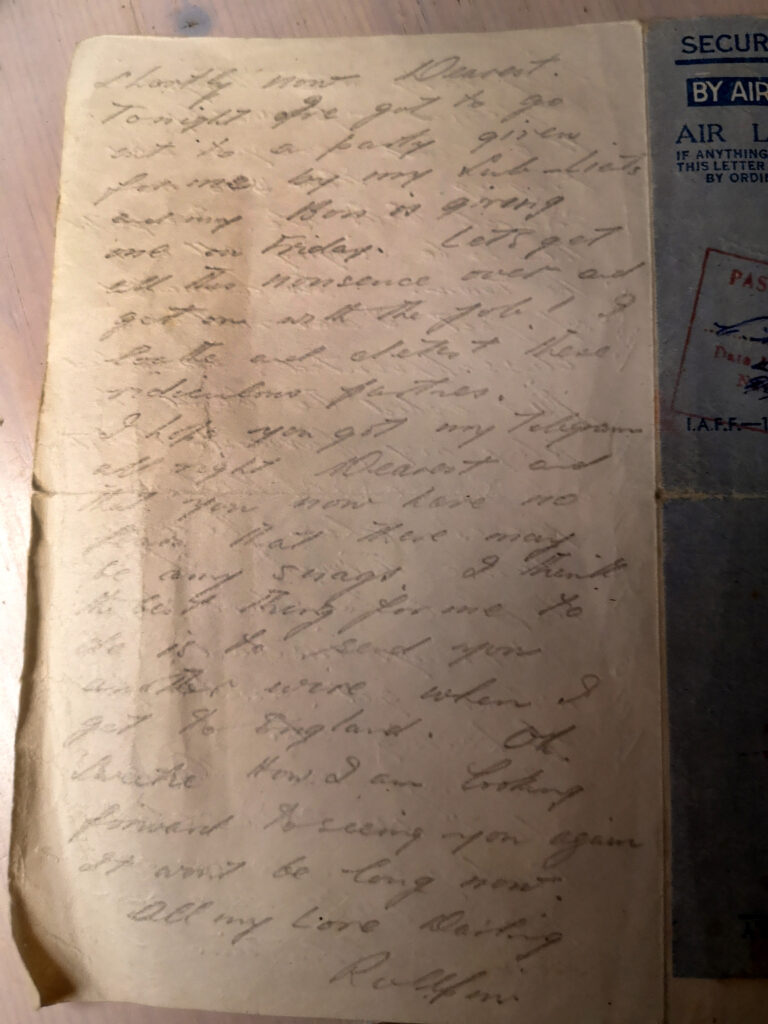 shortly now Dearest.
Tonight I've got to go
out to a party given
for me by my Sub-Lieuts
and my Boss is giving
one on Friday. Let's get
all this nonsence over and
get on with the job! I
loathe and detest these
ridiculous parties.
I hope you got my Telegram
all right Dearest and
that you now have no
fears that there may
be any snags. I think
the best thing for me to
do is to send you
another wire when I
get to England. Oh
Sweetie How I am looking
forward to seeing you again
It won't be long now.
All my Love Darling
SECUR
BY AIR
AIR L
IF ANYTHING
THIS LETTER
BY ORDI
PAS
Date
I.A.F.F.—1